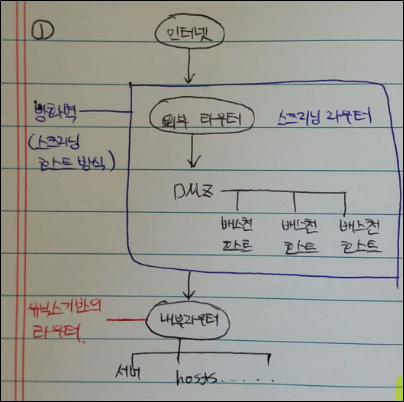 ①
인터넷
방화벽
(스크리닝
호스트 방식)
외부 라우터
스크리닝 라우터
DMZ
배스천 배스천 배스천
호스트 호스트 호스트
유닉스기반의
라우터.
내부라우터
서버 hosts......